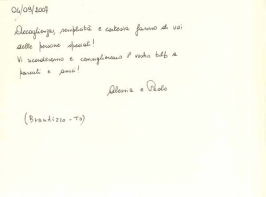 04/09/2007
Accoglienza, semplicità e cortesia fanno di voi
delle persone speciali!
Vi ricorderemo e consiglieremo il vostro b&b a
parenti e amici!
Alessia e Paolo
(Brandizzo - TO)